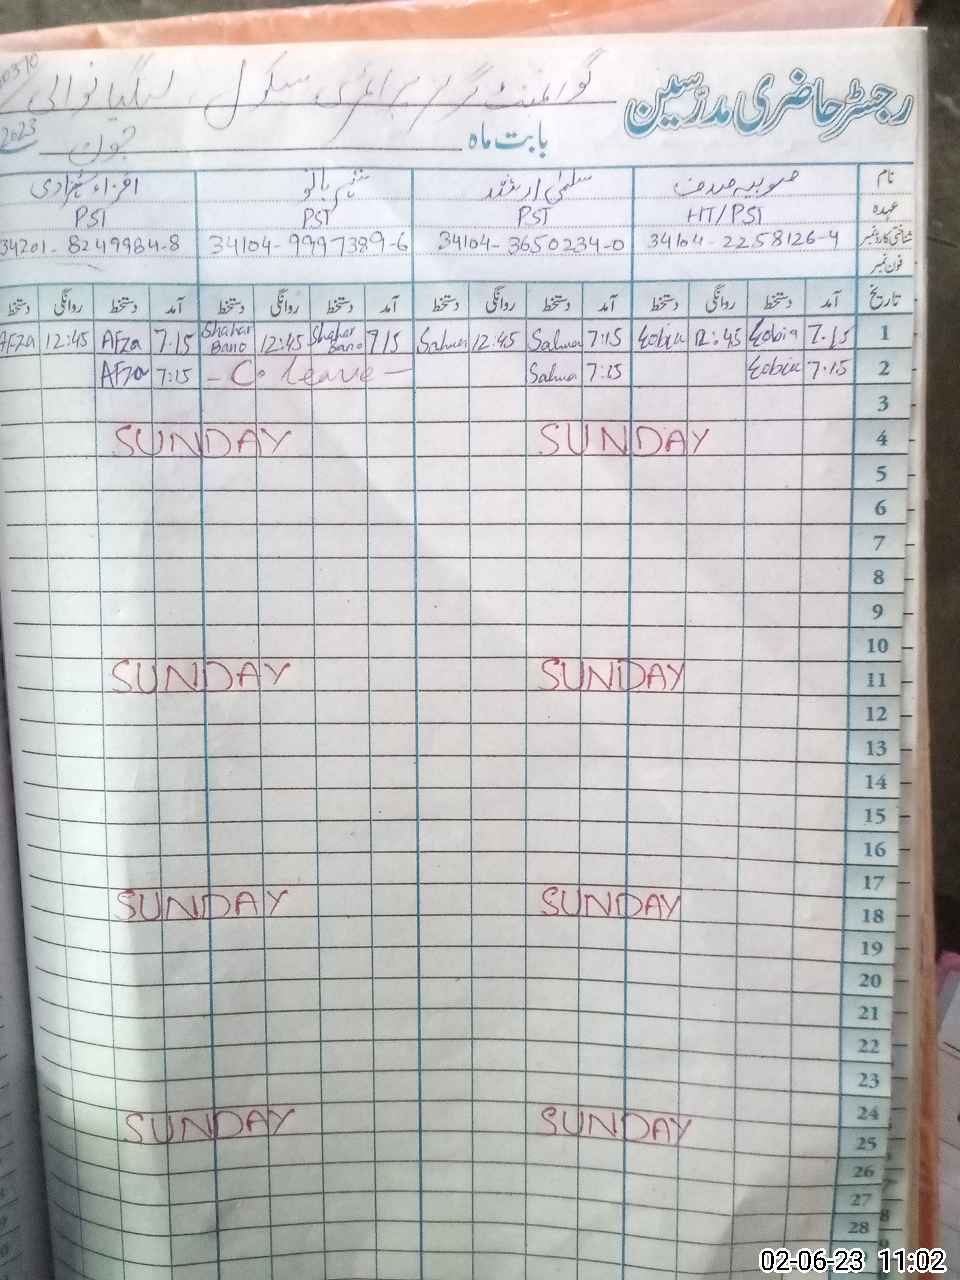 رجسٹر حاضری مدرسین
گورنمنٹ گرلز پرائمری سکول
بابت ماہ جون 2023
نام صوبیہ صدف سلمیٰ ارشد بانو افزاء شہزادی
عہدہ HT/PST PST PST PST
شناختی کارڈ نمبر 34104-2258126-4 34104-3650234-0 34104-9997389-6 34201-8249984-8
فون نمبر
تاریخ آمد دستخط روانگی دستخط آمد دستخط روانگی دستخط آمد دستخط روانگی دستخط آمد دستخط روانگی دستخط
1 7.15 12:45 7:15 Salma 12:45 Salma 7 15 Shahar Bano 12:45 Shahar Bano 7:15 Afza 12:45 Afza
2 7.15 7:15 Salma - C. leave - 7:15 Afza
3
4 SUNDAY SUNDAY
5
6
7
8
9
10
11 SUNDAY SUNDAY
12
13
14
15
16
17
18 SUNDAY SUNDAY
19
20
21
22
23
24
25 SUNDAY SUNDAY
26
27
28
02-06-23 11:02